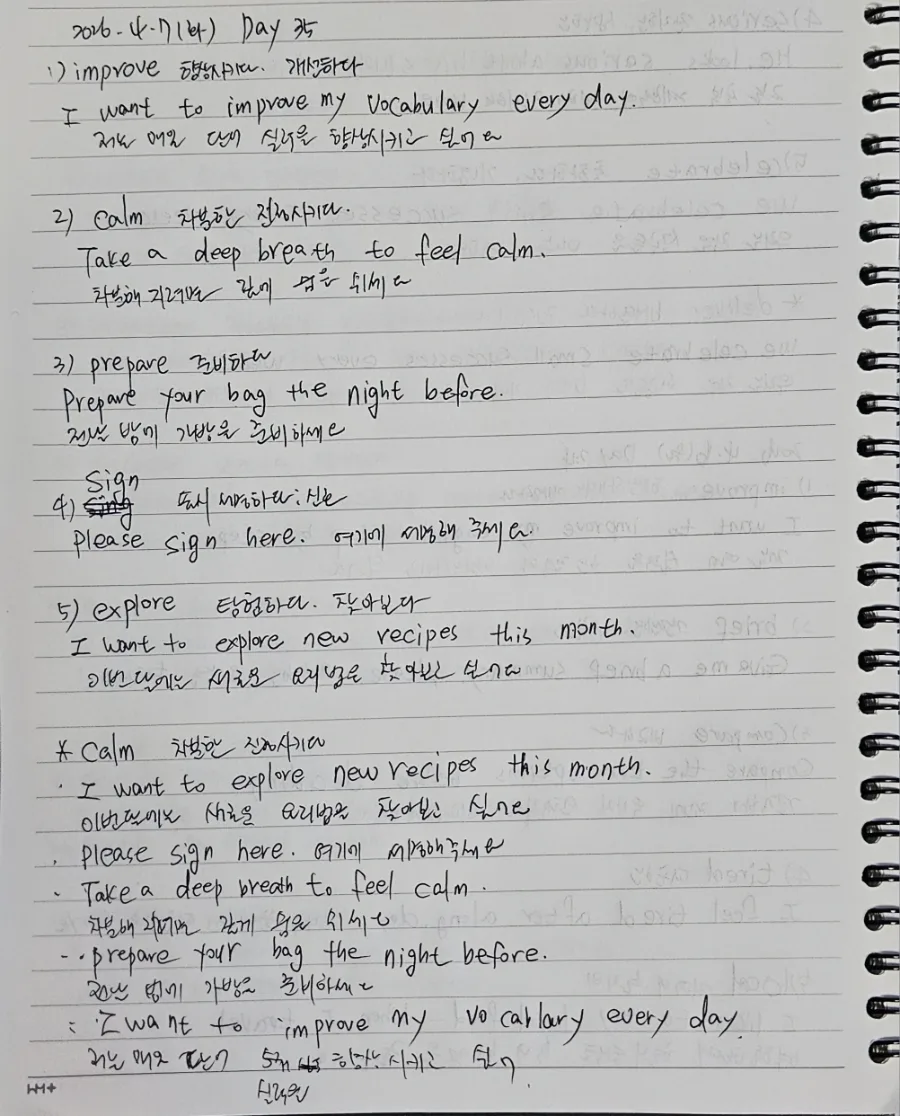 2026.4.7(화) Day 35
1) improve 향상시키다. 개선하다
I want to improve my vocabulary every day.
저는 매일 단어 실력을 향상시키고 싶어요
2) calm 차분한 진정시키다.
Take a deep breath to feel calm.
차분해 지려면 깊게 숨을 쉬세요
3) prepare 준비하다
Prepare your bag the night before.
전날 밤에 가방을 준비하세요
Sign
4) sing 표시 서명하다:신호
Please sign here. 여기에 서명해 주세요.
5) explore 탐험하다. 찾아보다
I want to explore new recipes this month.
이번달에는 새로운 요리법을 찾아보고 싶어요
* calm 차분한 진정시키다
· I want to explore new recipes this month.
이번달에는 새로운 요리법을 찾아보고 싶어요
· Please sign here. 여기에 서명해주세요
· Take a deep breath to feel calm.
차분해 지려면 깊게 숨을 쉬세요
·· prepare your bag the night before.
전날 밤에 가방을 준비하세요
: I want to improve my vocablary every day.
저는 매일 단어 향상 시키고 싶어
실력을